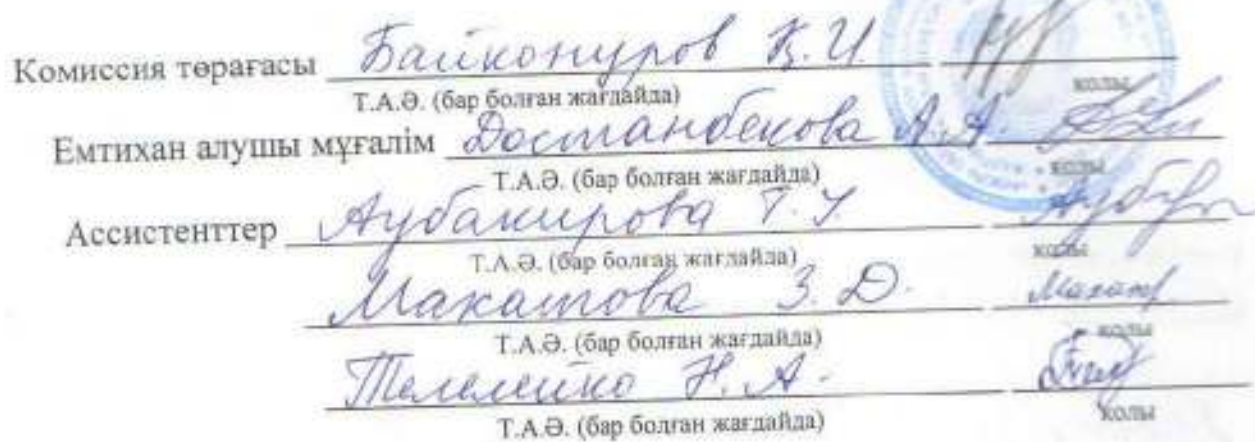 Комиссия төрағасы Байконуров Қ.И. қолы
Т.А.Ә. (бар болған жағдайда)
Емтихан алушы мұғалім Достанбекова А.А. қолы
Т.А.Ә. (бар болған жағдайда)
Ассистенттер Аубакирова Т.У қолы
Т.А.Ә. (бар болған жағдайда)
Макатова З.Д. қолы
Т.А.Ә. (бар болған жағдайда)
Н.А. қолы
Т.А.Ә. (бар болған жағдайда)